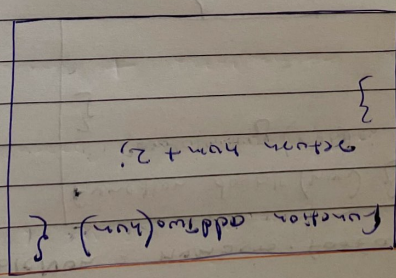 function addTwo(num) {
return num + 2;
}